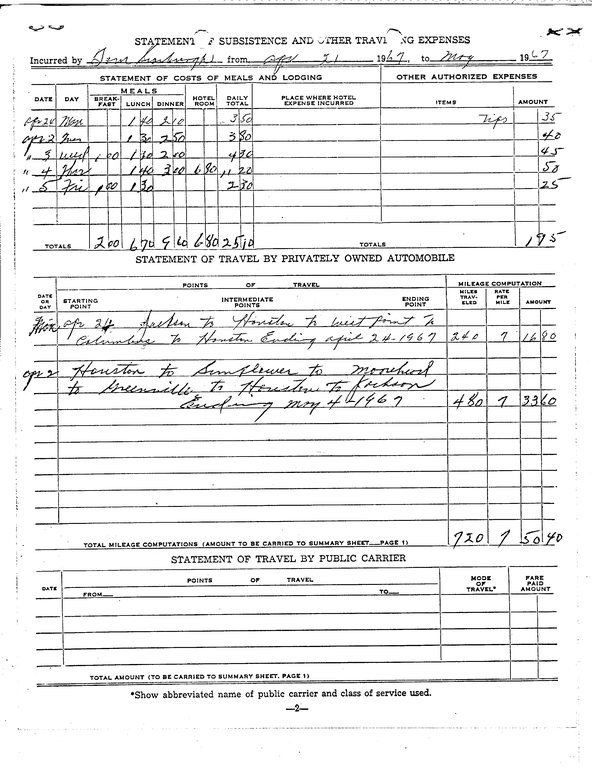 STATEMENT OF SUBSISTENCE AND OTHER TRAVELING EXPENSES
Incurred by Tom Scarbrough from apr 21 1967, to May 1967
STATEMENT OF COSTS OF MEALS AND LODGING OTHER AUTHORIZED EXPENSES
MEALS
DATE DAY BREAK-FAST LUNCH DINNER HOTEL ROOM DAILY TOTAL PLACE WHERE HOTEL EXPENSE INCURRED ITEMS AMOUNT
apr 24 Mon 1 40 2 10 3 50 Tips 35
apr 2 Tues 1 30 2 50 3 80 40
" 3 Wed 1 00 1 30 2 00 4 30 45
" 4 1 40 3 00 6 80 11 20 50
" 5 Fri 1 00 1 30 2 30 25
TOTALS 2 00 6 70 9 60 6 80 25 10 TOTALS 1 95
STATEMENT OF TRAVEL BY PRIVATELY OWNED AUTOMOBILE
POINTS OF TRAVEL MILEAGE COMPUTATION
DATE OR DAY STARTING POINT INTERMEDIATE POINTS ENDING POINT MILES TRAV-ELED RATE PER MILE AMOUNT
Mon apr 24 Jackson to Houston to West Point to
Columbus to Houston Ending april 24-1967 240 7 16 80
apr 2 Houston to Sunflower to Moorhead
to Greenville to Houston to Jackson
Ending May 4-1967 480 7 33 60
TOTAL MILEAGE COMPUTATIONS (AMOUNT TO BE CARRIED TO SUMMARY SHEET, PAGE 1) 720 7 50 40
STATEMENT OF TRAVEL BY PUBLIC CARRIER
DATE POINTS OF TRAVEL MODE OF TRAVEL* FARE PAID AMOUNT
FROM TO
TOTAL AMOUNT (TO BE CARRIED TO SUMMARY SHEET, PAGE 1)
*Show abbreviated name of public carrier and class of service used.
—2—